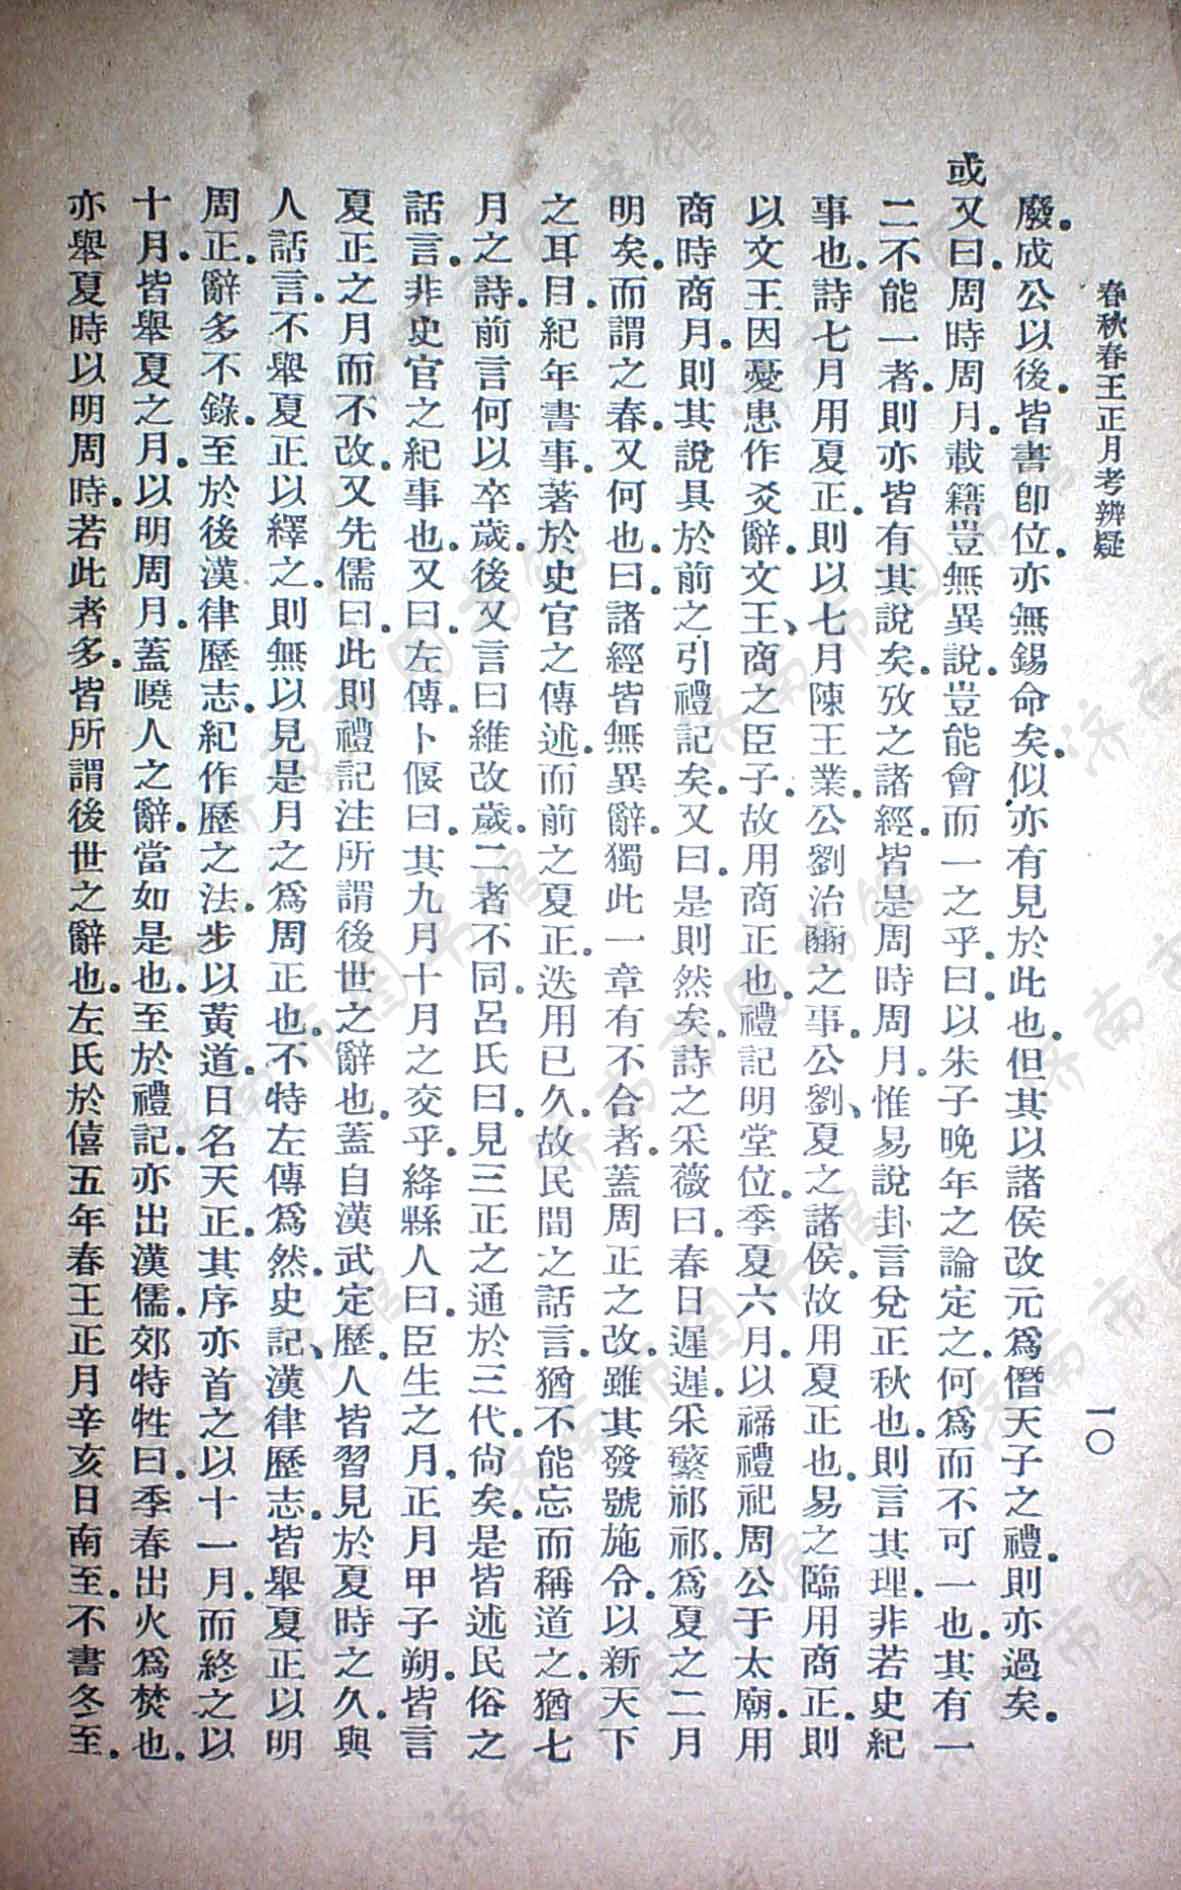 春秋春王正月考辨疑
一〇
廢。成公以後。皆書卽位。亦無錫命矣。似亦有見於此也。但其以諸侯改元爲僭天子之禮。則亦過矣。
或又曰。周時周月。載籍豈無異說。豈能會而一之乎。曰。以朱子晚年之論定之。何爲而不可一也。其有一
二不能一者。則亦皆有其說矣。攷之諸經。皆是周時周月。惟易說卦言兌正秋也。則言其理。非若史紀
事也。詩七月用夏正。則以七月陳王業。公劉治豳之事。公劉、夏之諸侯。故用夏正也。易之臨用商正。則
以文王因憂患作爻辭。文王、商之臣子。故用商正也。禮記明堂位。季夏六月。以禘禮祀周公于太廟。用
商時商月。則其說具於前之引禮記矣。又曰。是則然矣。詩之采薇曰。春日遲遲。采蘩祁祁。爲夏之二月
明矣。而謂之春。又何也。曰。諸經皆無異辭。獨此一章有不合者。蓋周正之改。雖其發號施令。以新天下
之耳目。紀年書事。著於史官之傳述。而前之夏正。迭用已久。故民間之話言。猶不能忘而稱道之。猶七
月之詩。前言何以卒歲。後又言曰維改歲。二者不同。呂氏曰。見三正之通於三代。尙矣。是皆述民俗之
話言。非史官之紀事也。又曰。左傳。卜偃曰。其九月十月之交乎。絳縣人曰。臣生之月。正月甲子朔。皆言
夏正之月而不改。又先儒曰。此則禮記注所謂後世之辭也。蓋自漢武定歷。人皆習見於夏時之久。與
人話言。不舉夏正以繹之。則無以見是月之爲周正也。不特左傳爲然。史記、漢律歷志。皆舉夏正以明
周正。辭多不錄。至於後漢律歷志。紀作歷之法。步以黃道。日名天正。其序亦首之以十一月。而終之以
十月。皆舉夏之月。以明周月。蓋曉人之辭。當如是也。至於禮記。亦出漢儒。郊特牲曰。季春出火爲焚也。
亦舉夏時以明周時。若此者多。皆所謂後世之辭也。左氏於僖五年春王正月辛亥日南至。不書冬至。